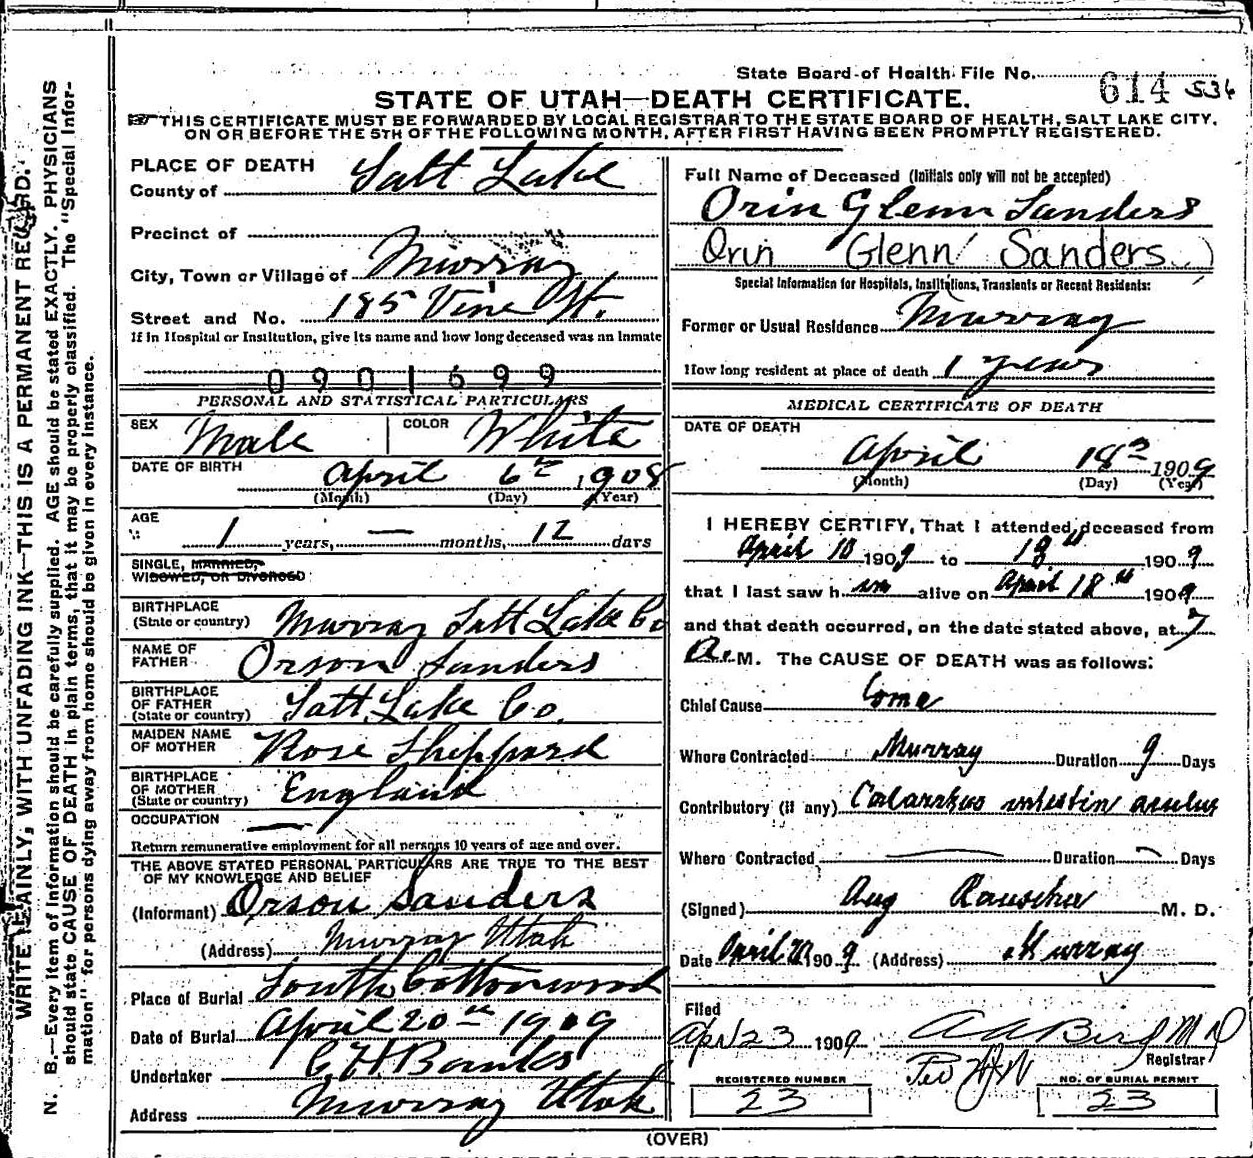 State Board of Health File No. 614 536
STATE OF UTAH—DEATH CERTIFICATE.
THIS CERTIFICATE MUST BE FORWARDED BY LOCAL REGISTRAR TO THE STATE BOARD OF HEALTH, SALT LAKE CITY,
ON OR BEFORE THE 5TH OF THE FOLLOWING MONTH, AFTER FIRST HAVING BEEN PROMPTLY REGISTERED.
WRITE PLAINLY, WITH UNFADING INK—THIS IS A PERMANENT RECORD.
N. B.—Every item of Information should be carefully supplied. AGE should be stated EXACTLY. PHYSICIANS
should state CAUSE OF DEATH in plain terms, that it may be properly classified. The "Special Infor-
mation" for persons dying away from home should be given in every instance.
PLACE OF DEATH
County of Salt Lake
Precinct of
City, Town or Village of Murray
Street and No. 185 Vine St.
If in Hospital or Institution, give its name and how long deceased was an Inmate
0901699
PERSONAL AND STATISTICAL PARTICULARS
SEX Male COLOR White
DATE OF BIRTH April 6th 1908
(Month) (Day) (Year)
AGE
1 years, — months, 12 days
SINGLE, MARRIED,
WIDOWED, OR DIVORCED
BIRTHPLACE
(State or country) Murray Salt Lake Co
NAME OF
FATHER Orson Sanders
BIRTHPLACE
OF FATHER
(State or country) Salt Lake Co.
MAIDEN NAME
OF MOTHER Rose Shippard
BIRTHPLACE
OF MOTHER
(State or country) England
OCCUPATION —
Return remunerative employment for all persons 10 years of age and over.
THE ABOVE STATED PERSONAL PARTICULARS ARE TRUE TO THE BEST
OF MY KNOWLEDGE AND BELIEF
(Informant) Orson Sanders
(Address) Murray Utah
Place of Burial South Cottonwood
Date of Burial April 20th 1909
Undertaker C H Banks
Address Murray Utah
Full Name of Deceased (Initials only will not be accepted)
Orin Glenn Sanders
Orin Glenn Sanders )
Special Information for Hospitals, Institutions, Transients or Recent Residents:
Former or Usual Residence Murray
How long resident at place of death 1 years
MEDICAL CERTIFICATE OF DEATH
DATE OF DEATH
April 18 1909
(Month) (Day) (Year)
I HEREBY CERTIFY, That I attended deceased from
April 10 1909 to 18th 1909
that I last saw h im alive on April 18th 1909
and that death occurred, on the date stated above, at 7
A. M. The CAUSE OF DEATH was as follows:
Chief Cause Coma
Where Contracted Murray Duration 9 Days
Contributory (if any) Catarrhus intestin acutus
Where Contracted — Duration — Days
(Signed) Aug Rauscher M. D.
Date April 20 1909 (Address) Murray
Filed
Apr 23 1909 A A Bird M D
Registrar
Per
REGISTERED NUMBER
23
NO. OF BURIAL PERMIT
23
(OVER)